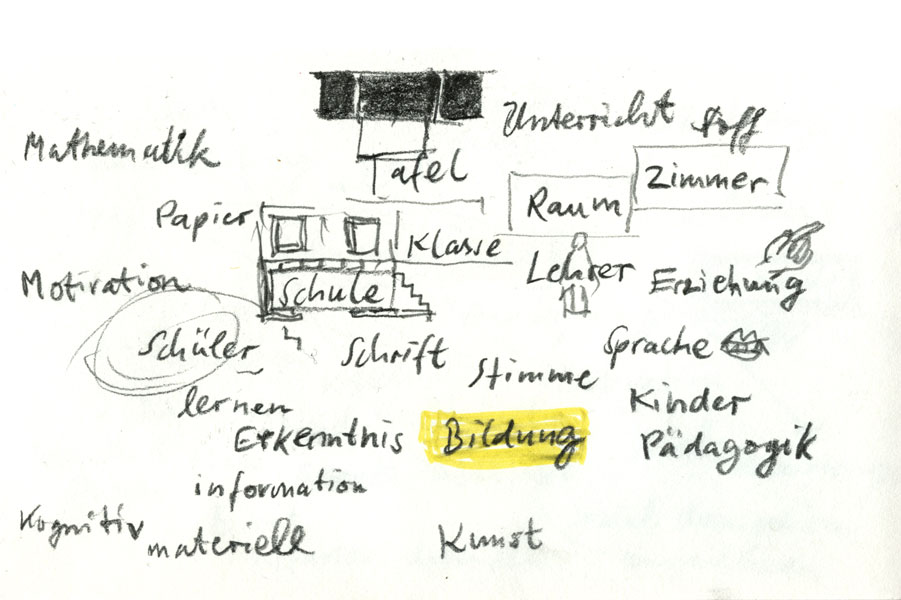 Unterricht Stoff
Mathematik
Tafel
Zimmer
Raum
Papier
Klasse
Lehrer
Motivation
Erziehung
Schule
Schüler
Schrift
Sprache
Stimme
lernen
Kinder
Erkenntnis
Bildung
Pädagogik
information
Kognitiv
materiell
Kunst